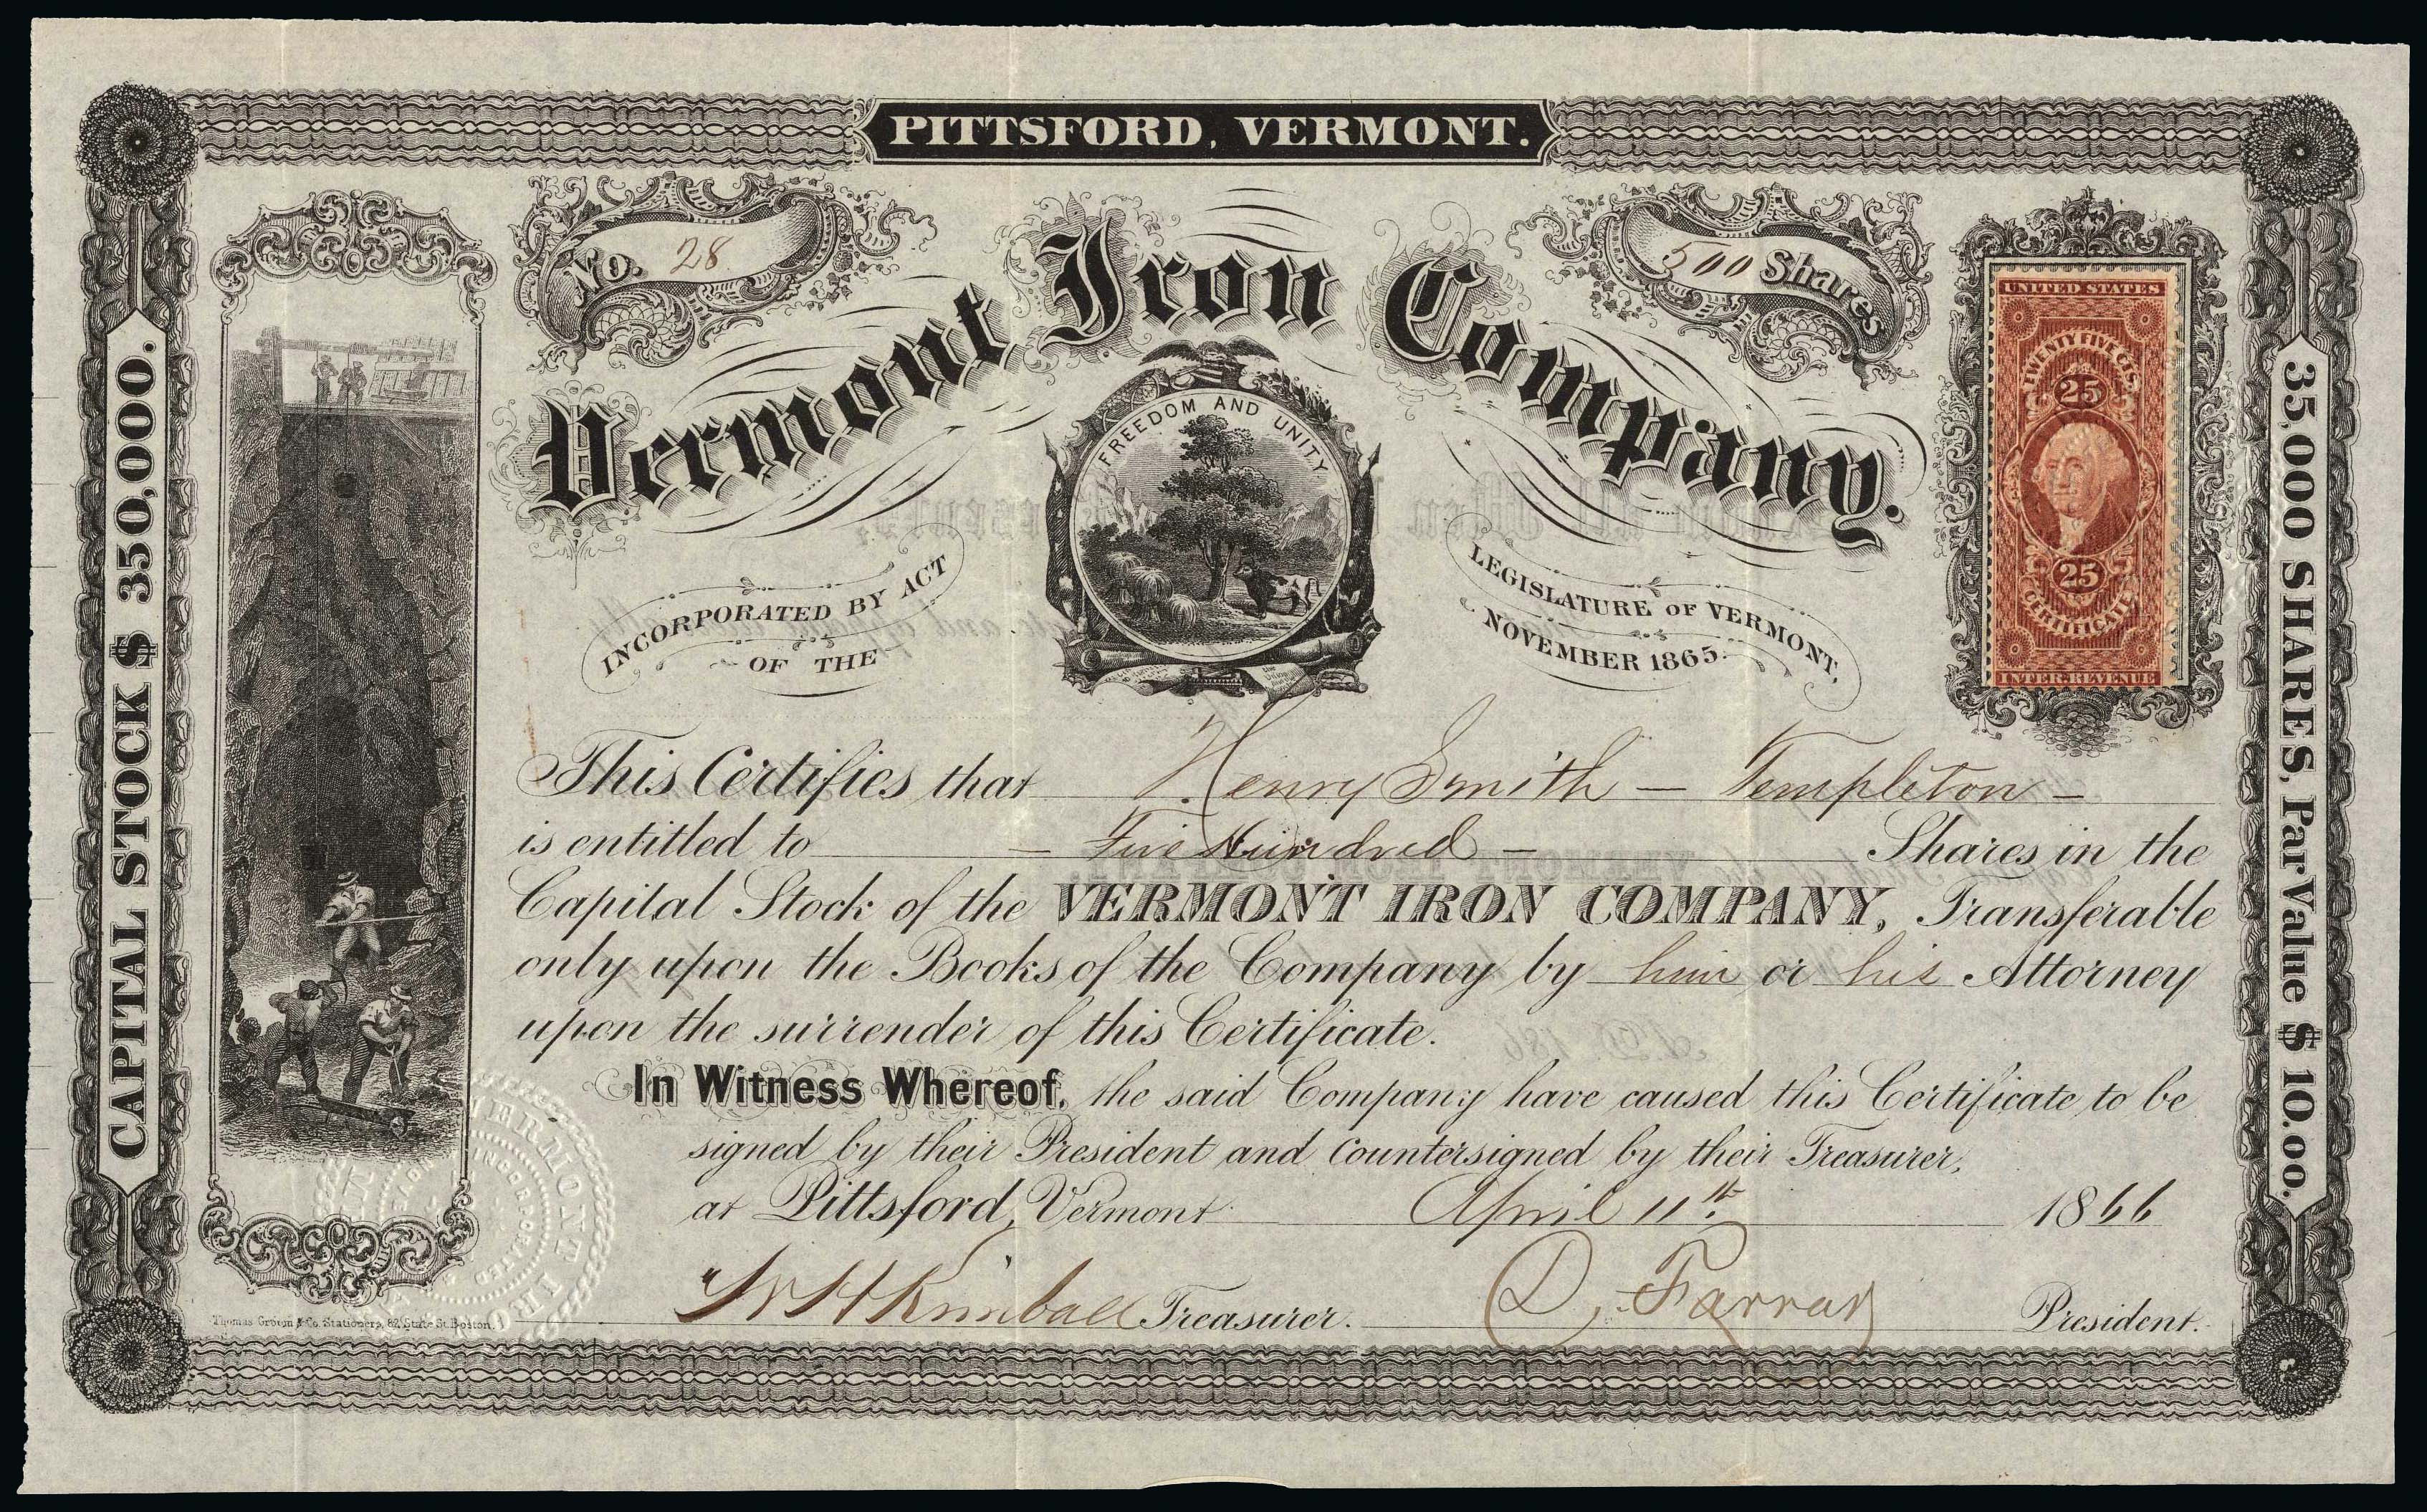 PITTSFORD, VERMONT.
No. 28
500 Shares
Vermont Iron Company.
CAPITAL STOCK $ 350,000.
35,000 SHARES, Par Value $ 10.00.
UNITED STATES
TWENTY FIVE CTS.
25
25
CERTIFICATE
INTER. REVENUE
FREEDOM AND UNITY
INCORPORATED BY ACT
OF THE
LEGISLATURE OF VERMONT,
NOVEMBER 1865.
This Certifies that Henry Smith — Templeton —
is entitled to — Five Hundred — Shares in the
Capital Stock of the VERMONT IRON COMPANY, Transferable
only upon the Books of the Company by him or his Attorney
upon the surrender of this Certificate.
In Witness Whereof, the said Company have caused this Certificate to be
signed by their President and Countersigned by their Treasurer,
at Pittsford, Vermont April 11th 1866
W H Kimball Treasurer. D. Farrar President.
Thomas Groom & Co. Stationers, 82 State St. Boston.
VERMONT IRON
INCORPORATED